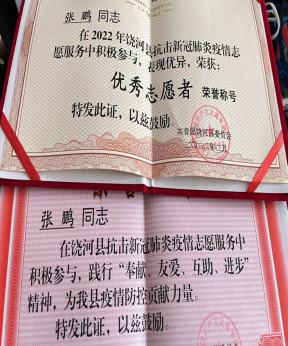 张 鹏 同志
在2022年饶河县抗击新冠肺炎疫情志
愿服务中积极参与，表现优异，荣获：
优秀志愿者 荣誉称号
特发此证，以兹鼓励。
共青团饶河县委员会
张 鹏 同志
在饶河县抗击新冠肺炎疫情志愿服务中
积极参与，践行“奉献、友爱、互助、进步”
精神，为我县疫情防控贡献力量。
特发此证，以兹鼓励。